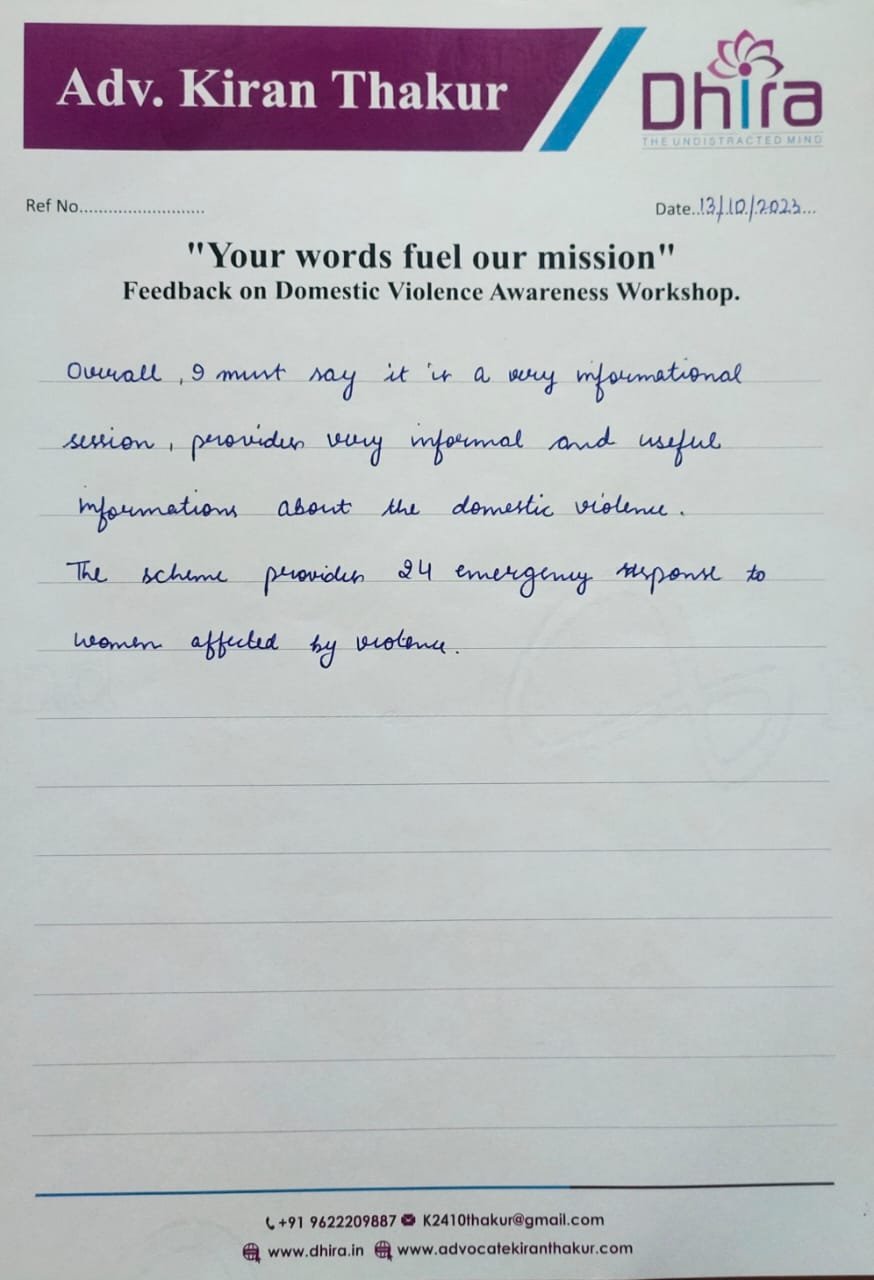 Adv. Kiran Thakur
Dhira
THE UNDISTRACTED MIND
Ref No..........................
Date..13/10/2023...
"Your words fuel our mission"
Feedback on Domestic Violence Awareness Workshop.
Overall, I must say it is a very informational
session, provides very informal and useful
informations about the domestic violence.
The scheme provides 24 emergency response to
women affected by violence.
+91 9622209887 K2410thakur@gmail.com
www.dhira.in www.advocatekiranthakur.com